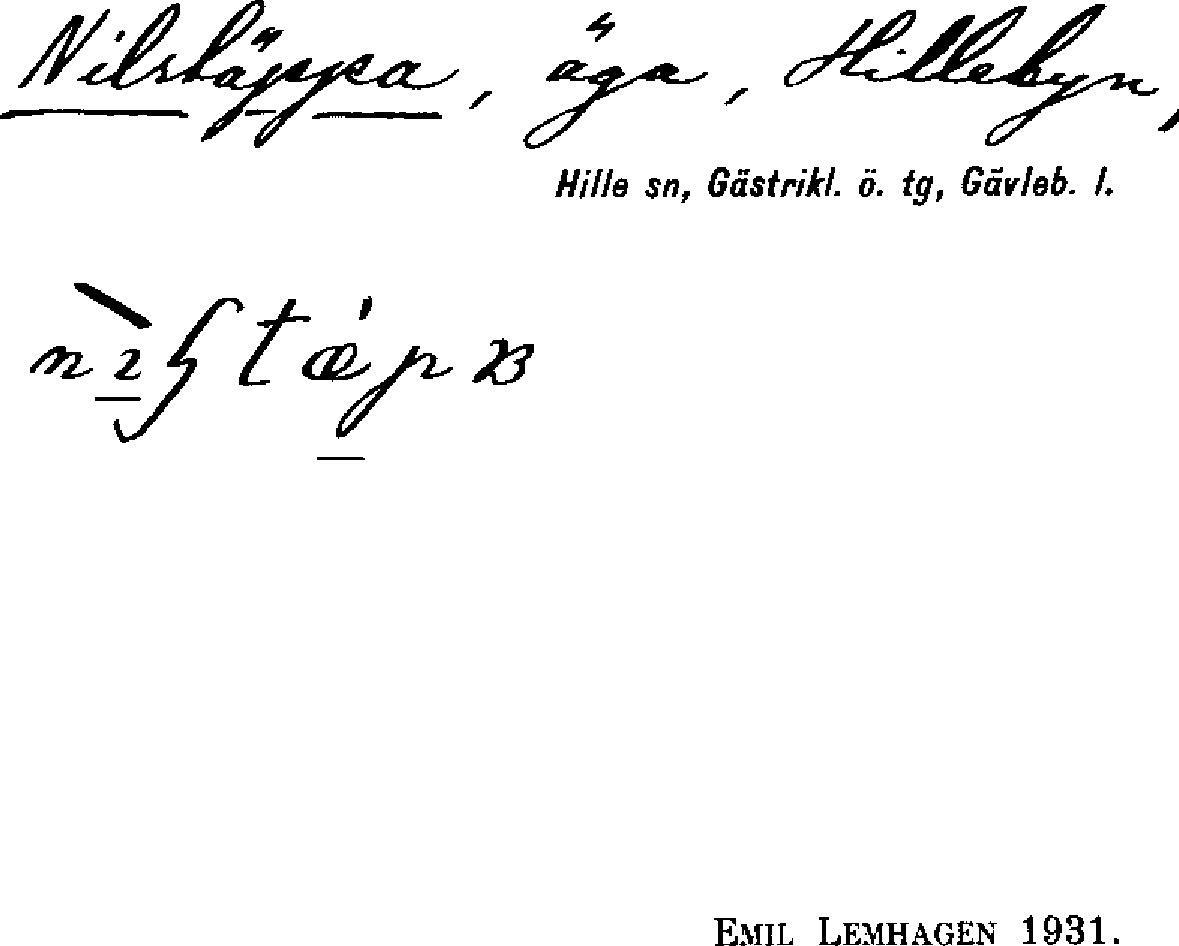 Nilstäppa, äga, Hillebyn,
Hille sn, Gästrikl. ö. tg, Gävleb. l.
EMIL LEMHAGEN 1931.